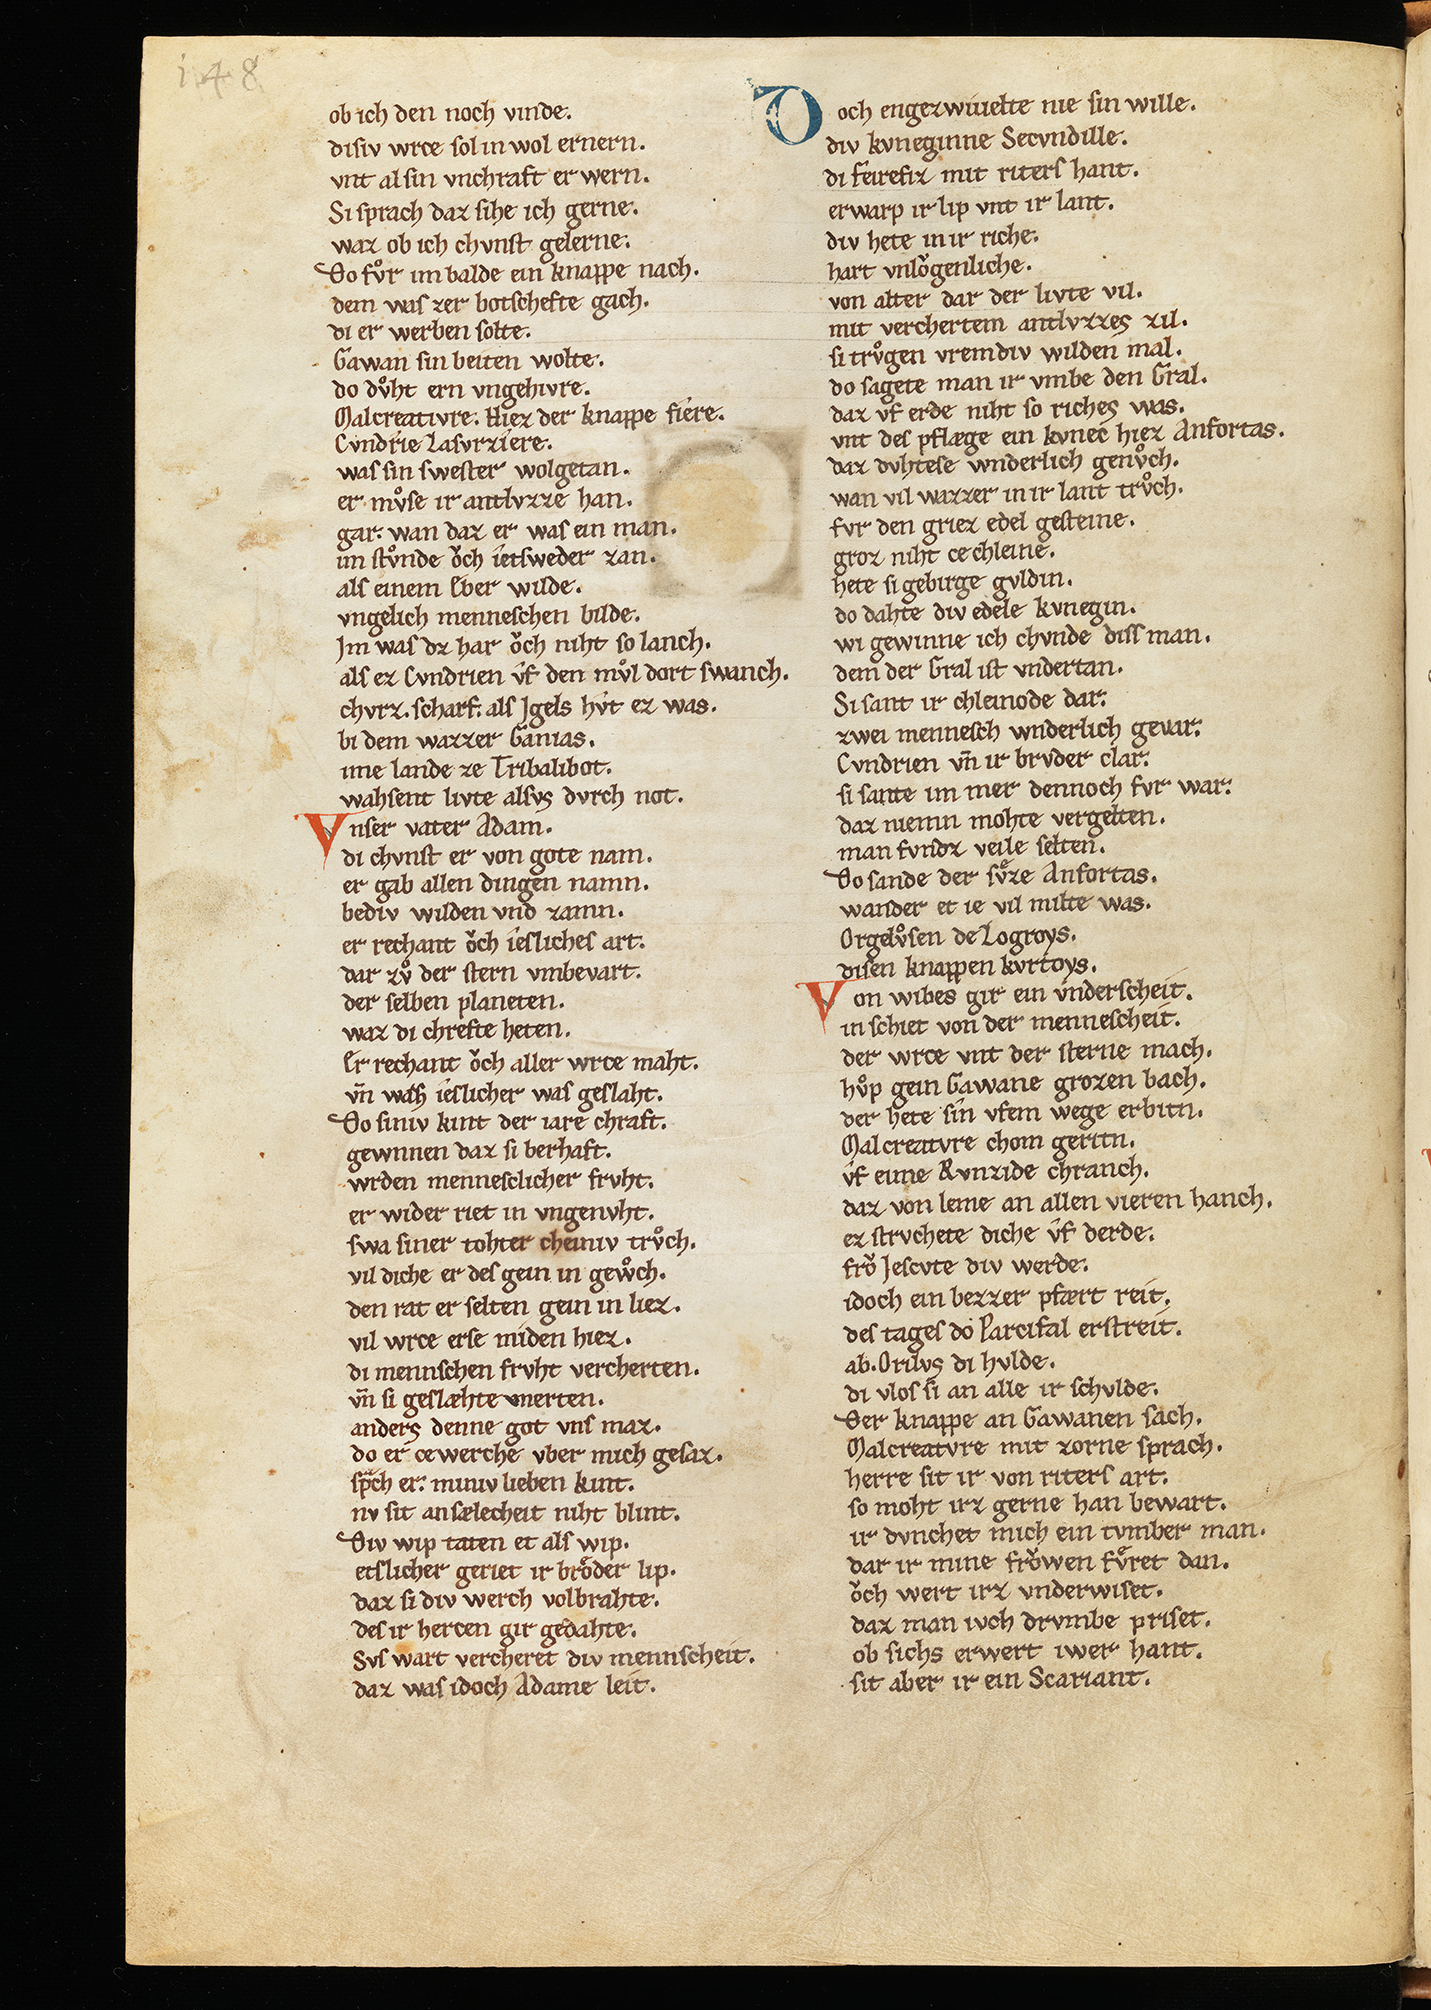 148
ob ich den noch vinde.
disiv wrce sol in wol ernern.
vnt al sin vnchraft er wern.
Si sprach daz sihe ich gerne.
waz ob ich chvnst gelerne.
Do fvͦr im balde ein knappe nach.
dem was zer botschefte gach.
di er werben solte.
Gawan sin beiten wolte.
do dvͦht ern vngehivre.
Malcreativre. hiez der knappe fiere.
Cvndrie Lasvrziere.
was sin swester wolgetan.
er mvͦse ir antlvzze han.
gar. wan daz er was ein man.
im stvͦnde oͮch ietsweder zan.
als einem Eber wilde.
vngelich menneschen bilde.
Im was dz har oͮch niht so lanch.
als ez Cvndrien vf den mvͦl dort swanch.
chvrz. scharf. als Igels hvt ez was.
bi dem wazzer Ganias.
ime lande ze Tribalibot.
wahsent livte alsvs dvrch not.
Vnser vater Adam.
di chvnst er von gote nam.
er gab allen dingen namn.
bediv wilden vnd zamn.
er rechant oͮch iesliches art.
dar zvͦ der stern vmbevart.
der selben planeten.
waz di chrefte heten.
Er rechant oͮch aller wrce maht.
vn̄ was ieslicher was geslaht.
Do siniv kint der iare chraft.
gewnnen daz si berhaft.
wrden mennesclicher frvht.
er wider riet in vngenvht.
swa siner tohter cheiniv trvͦch.
vil diche er des gein in gewͦch.
den rat er selten gein in liez.
vil wrce erse miden hiez.
di mennschen frvht vercherten.
vn̄ si geslæhte vnerten.
anders denne got vns maz.
do er ce werche vber mich gesaz.
spͣch er. miniv lieben kint.
nv sit an sælecheit niht blint.
Div wip taten et als wip.
etslicher geriet ir broͮder lip.
daz si div werch volbrahte.
des ir hercen gir gedahte.
Svs wart vercheret div mennscheit.
daz was idoch Adame leit.
Doch engezwiuelte nie sin wille.
div kvneginne Secvndille.
di Feirefiz mit riters hant.
erwarp ir lip vnt ir lant.
div hete in ir riche.
hart vnloͮgenliche.
von alter dar der livte vil.
mit verchertem antlvzzes zil.
si trvͦgen vremdiv wilden mal.
do sagete man ir vmbe den Gral.
daz vf erde niht so riches was.
vnt des pflæge ein kvnec hiez Anfortas.
daz dvhtese wnderlich genvͦch.
wan vil wazzer in ir lant trvͦch.
fvr den griez edel gesteine.
groz niht ce chleine.
hete si gebirge gvldin.
do dahte div edele kvnegin.
wi gewinne ich chvnde diss man.
dem der Gral ist vndertan.
Si sant ir chleinode dar.
zwei mennesch wnderlich gevar.
Cvndrien vn̄ ir brvder clar.
si sante im mer dennoch fvr war.
daz niemn mohte vergelten.
man fvndz veile selten.
Do sande der svͤze Anfortas.
wander et ie vil milte was.
Orgelvͦsen de Logroys.
disen knappen kvrtoys.
Von wibes gir ein vnderscheit.
in schiet von der mennescheit.
der wrce vnt der sterne mach.
hvͦp gein Gawane grozen bach.
der hete sin vfem wege erbitn.
Malcreatvre chom geritn.
vf eime Rvnzide chranch.
daz von leme an allen vieren hanch.
ez strvchete diche vf derde.
froͮ Jescvte div werde.
idoch ein bezzer pfært reit.
des tages do Parcifal erstreit.
ab. Orilvs di hvlde.
di vlos si an alle ir schvlde.
Der knappe an Gawanen sach.
Malcreatvre mit zorne sprach.
herre sit ir von riters art.
so moht irz gerne han bewart.
ir dvnchet mich ein tvmber man.
dar ir mine froͮwen fvͤret dan.
oͮch wert irz vnderwiset.
daz man ivch drvmbe priset.
ob sichs erwert iwer hant.
sit aber ir ein Scariant.